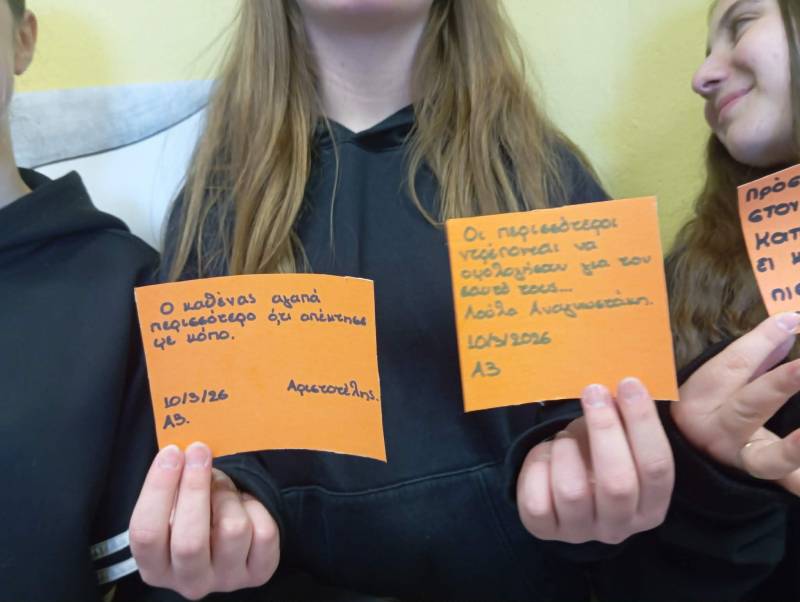 Ο καθένας αγαπά
περισσότερο ό,τι απέκτησε
με κόπο.
Αριστοτέλης.
10/3/26
Α3.
Οι περισσότεροι
ντρέπονται να
ομολογήσουν για τον
εαυτό τους...
Λούλα Αναγνωστάκη.
10/3/2026
Α3